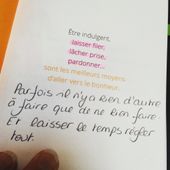 Être indulgent,
laisser filer,
lâcher prise,
pardonner...
sont les meilleurs moyens
d'aller vers le bonheur.
Parfois il n'y a rien d'autre
à faire que de ne rien faire.
Et laisser le temps régler
tout.